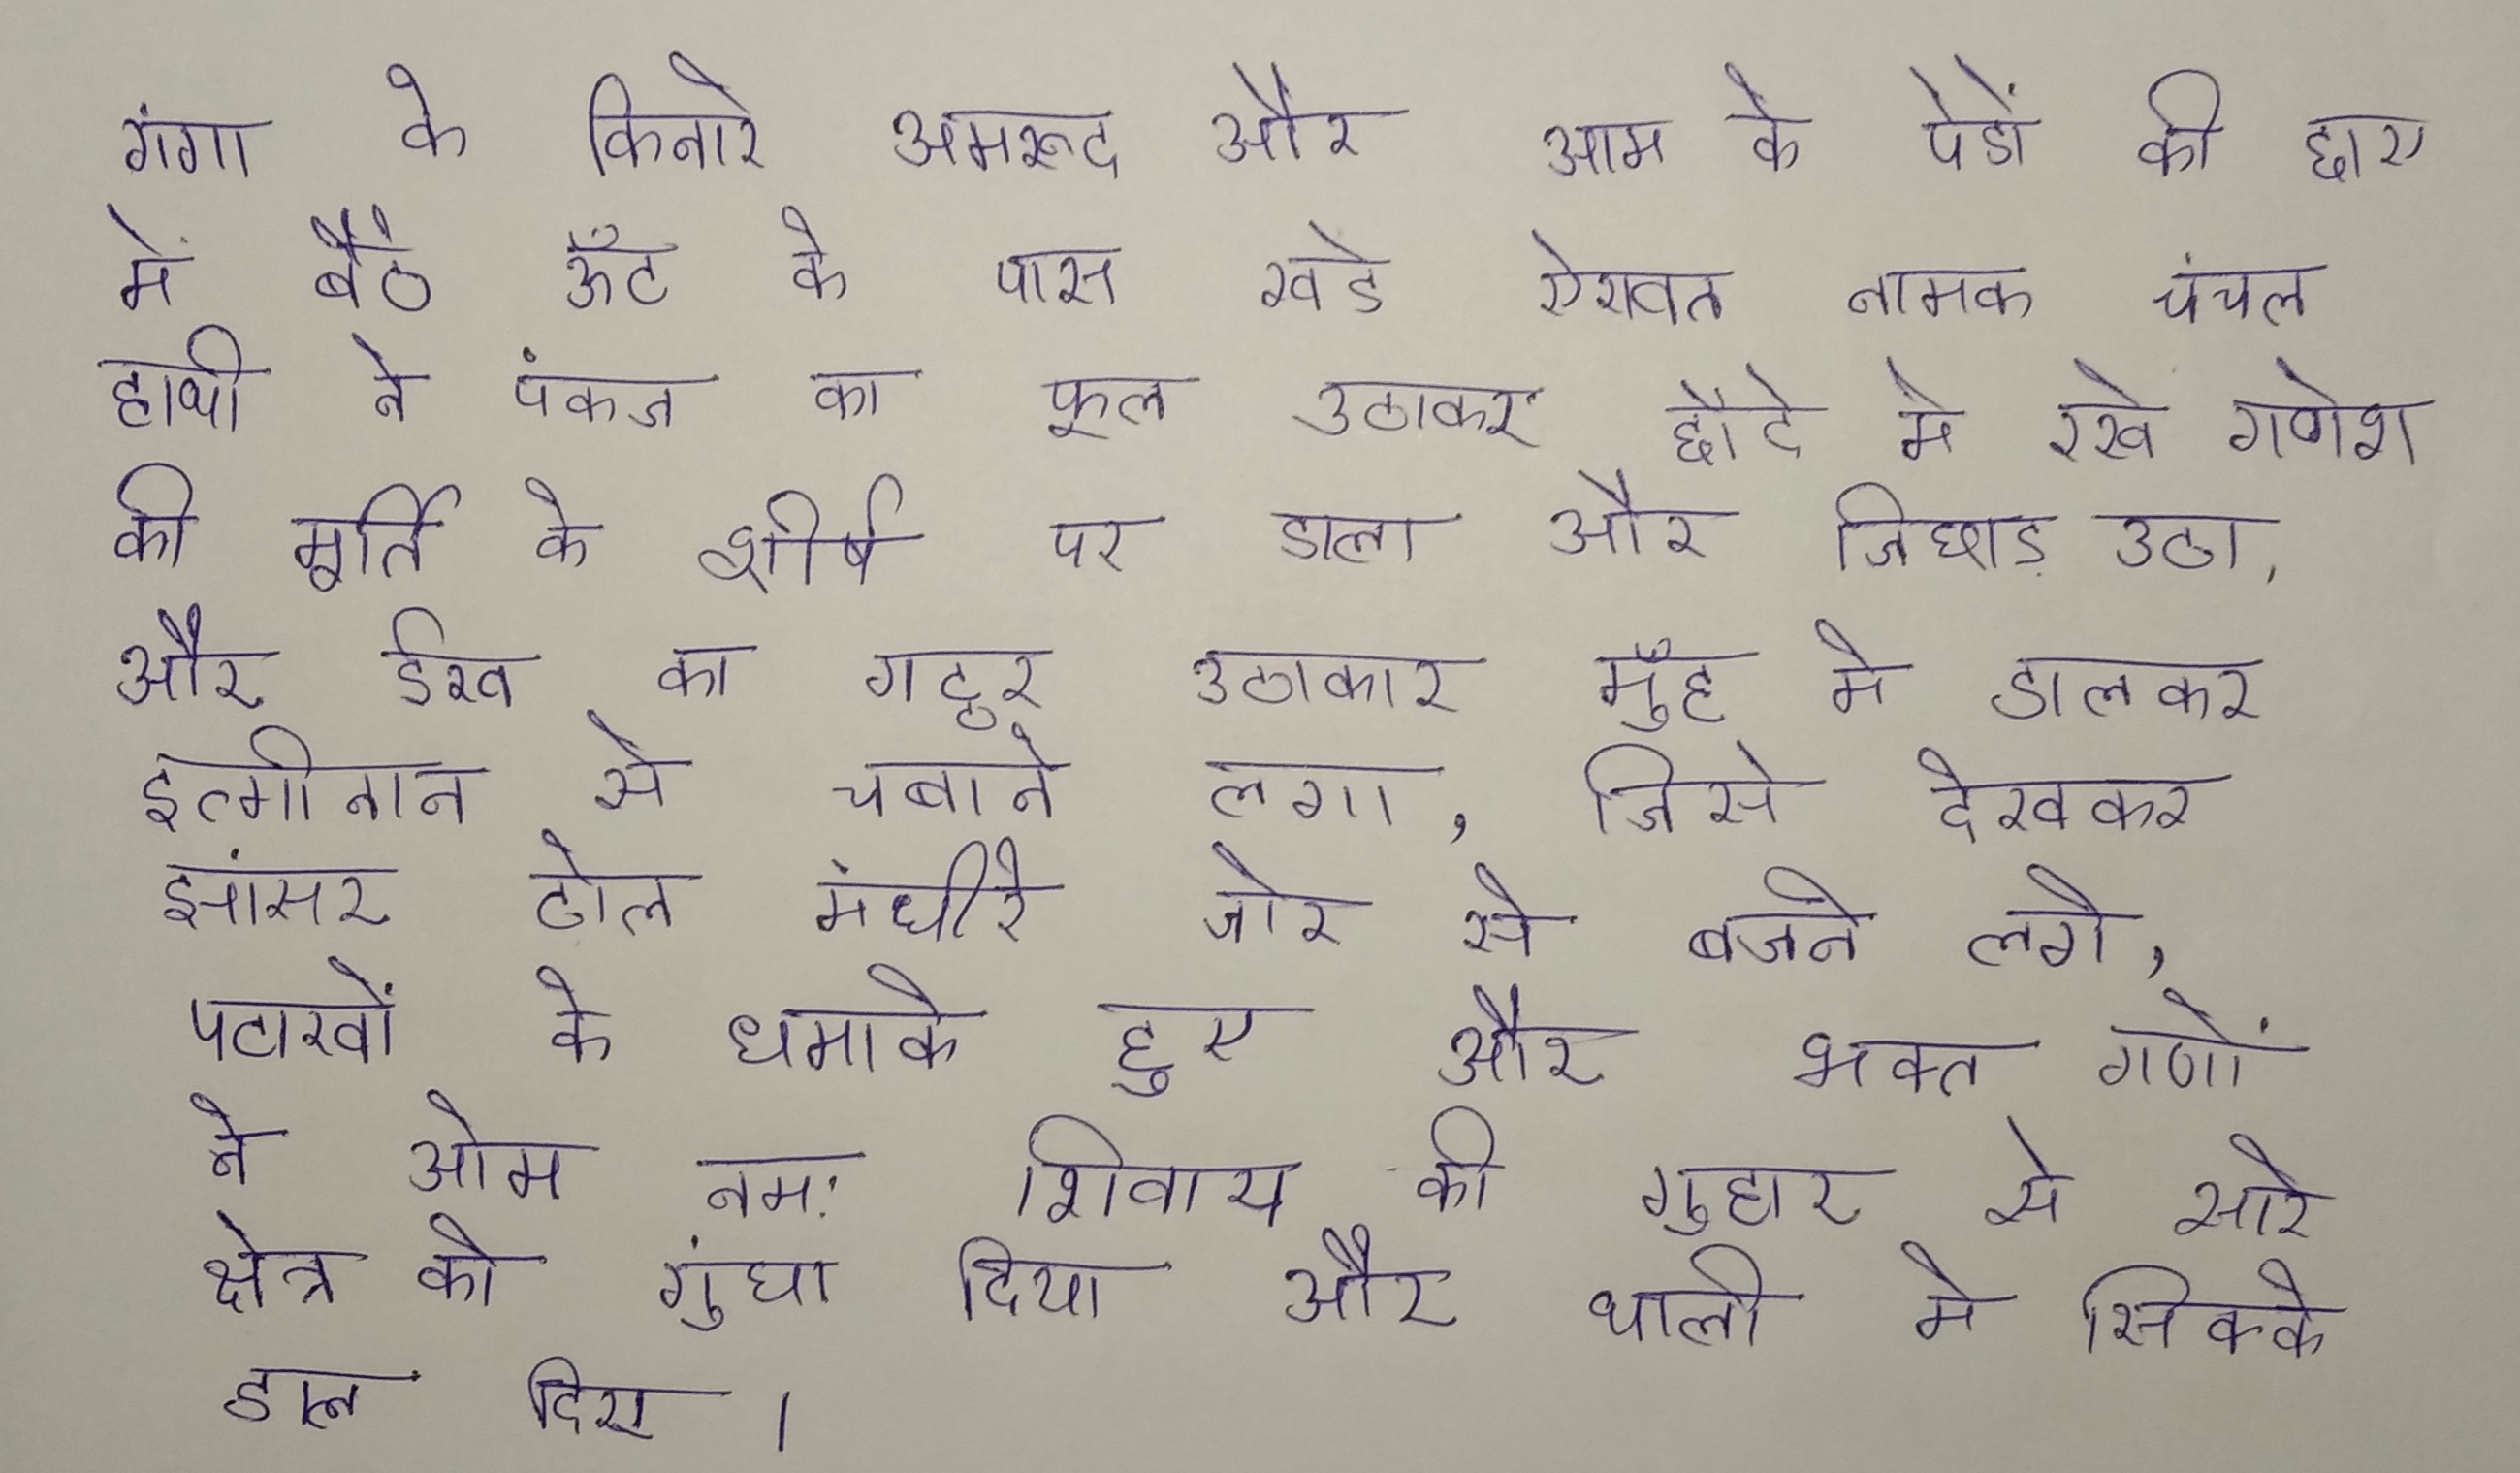 गंगा के किनारे अमरूद और आम के पेडों की छाए
में बैठे ऊँट के पास खडे ऐरावत नामक चंचल
हाथी ने पंकज का फूल उठाकर छौटे मे रखे गणेश
की मूर्ति के शीर्ष पर डाला और जिघाड़ उठा,
और ईख का गट्ठर उठाकार मुँह मे डालकर
इत्मीनान से चबाने लगा, जिसे देखकर
झांसर ढोल मंघीरे जोर से बजने लगे,
पटाखों के धमाके हुए और भक्त गणों
ने ओम नमः शिवाय की गुहार से सारे
क्षेत्र को गुंघा दिया और थाली मे सिक्के
डाल दिए।